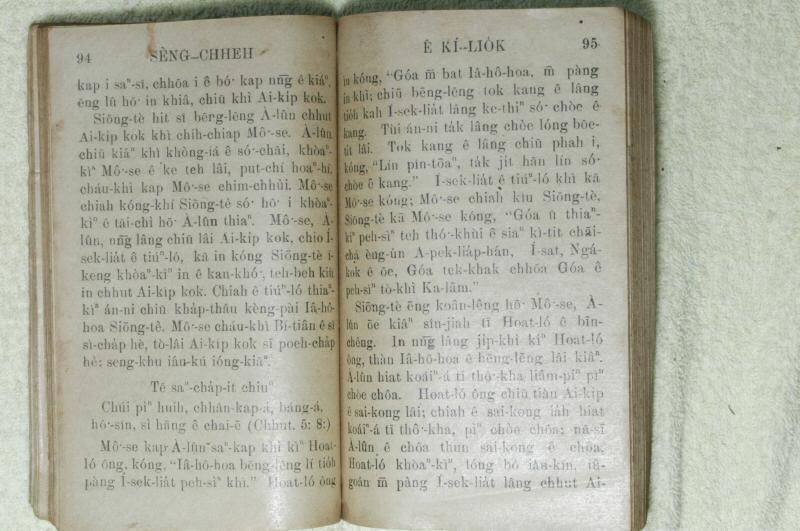 94 SÈNG-CHHEH
kap i saⁿ-sî, chhōa i ê bó͘ kap nn̄g ê kiáⁿ,
êng lû hō͘ in khiâ, chiū khì Ai-ki̍p kok.
Siōng-tè hit sî bēng-lēng À-lûn chhut
Ai-ki̍p kok khì chih-chiap Mô͘-se. À-lûn
chiū kiâⁿ khì khòng-iá ê só͘-chāi, khòaⁿ-
kìⁿ Mô͘-se ê ke teh lâi, put-chí hoaⁿ-hí,
cháu-khì kap Mô͘-se chim-chhùi. Mô͘-se
chiah kóng-khí Siōng-tè só͘ hō͘ i khòaⁿ-
kìⁿ ê tāi-chì hō͘ À-lûn thiaⁿ. Mô͘-se, À-
lûn, nn̄g lâng chiū lâi Ai-ki̍p kok, chio Í-
sek-lia̍t ê tiúⁿ-ló, kā in kóng Siōng-tè í-
keng khòaⁿ-kìⁿ in ê kan-khó͘, teh-beh kiù
in chhut Ai-ki̍p kok. Chiah ê tiúⁿ-ló thiaⁿ-
kìⁿ án-ni chiū kha̍p-thâu kèng-pài Iâ-hô-
hoa Siōng-tè. Mô͘-se cháu-khì Bí-tiân ê sî
sì-cha̍p hè, tò-lâi Ai-ki̍p kok sī poeh-cha̍p
hè; seng-khu iáu-kú ióng-kiāⁿ.
Tē saⁿ-cha̍p-it chiuⁿ
Chúi pìⁿ huih, chhân-kap-á, báng-á,
hó͘-sîn, sì hāng ê chai-ē (Chhut. 5: 8:)
Mô͘-se kap À-lûn saⁿ-kap khì kìⁿ Hoat-
ló ông, kóng, “Iâ-hô-hoa bēng-lēng lí tio̍h
pàng Í-sek-lia̍t peh-sìⁿ khì.” Hoat-ló ông
Ê KÍ-LIO̍K 95
in kóng, “Góa m̄ bat Iâ-hô-hoa, m̄ pàng
in khì; chiū bēng-lēng tok kang ê lâng
tio̍h kah Í-sek-lia̍t lâng ke-thiⁿ só͘ chòe ê
kang. Tùi án-ni ta̍k lâng chòe lóng bōe-
tit lâi. Tok kang ê lâng chiū phah i,
kóng, “Lín pîn-tōaⁿ, ta̍k ji̍t hān lín só͘
chòe ê kang.” Í-sek-lia̍t ê tiúⁿ-ló khì kā
Mô͘-se kóng; Mô͘-se chiah kiû Siōng-tè,
Siōng-tè kā Mô͘-se kóng, “Góa ū thiaⁿ-
kìⁿ peh-sìⁿ teh thó͘-khùi ê siaⁿ kì-tit chāi-
chá èng-ún A-pek-lia̍p-hán, Í-sat, Ngá-
kok ê ōe, Góa tek-khak chhōa Góa ê
peh-sìⁿ tò-khì Ka-lâm.”
Siōng-tè ēng koân-lêng hō͘ Mô͘-se, À-
lûn ōe kiâⁿ sîn-jiah tī Hoat-ló ê bīn-
chêng. In nn̄g lâng ji̍p-khì kìⁿ Hoat-ló
ông, thàn Iâ-hô-hoa ê bēng-lēng lâi kiâⁿ.
À-lûn hiat koáiⁿ-á tī thô͘-kha liâm-piⁿ pìⁿ
chòe chôa. Hoat-ló ông chiū tiàu Ai-ki̍p
ê sai-kong lâi; chiah ê sai-kong iáh hiat
koáiⁿ-á tī thô͘-kha, pìⁿ chòe chôa; nā-sī
À-lûn ê chôa thun sai-kong ê chôa.
Hoat-ló khòaⁿ-kìⁿ, lóng bô iàu-kín, iâ-
goân m̄ pàng Í-sek-lia̍t lâng chhut Ai-